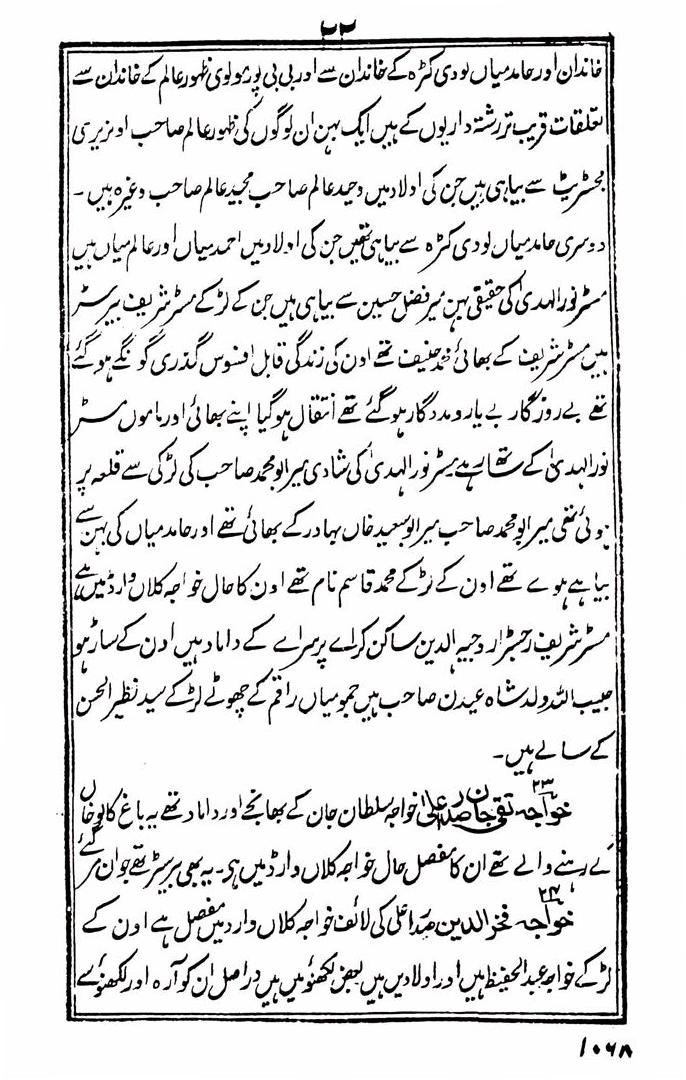 ۲۲
خاندان اور حامد میاں لودی کٹرہ کے خاندان سے اور بی بی پور مولوی ظہور عالم کے خاندان سے
تعلقات قریب تر رشتہ داریوں کے ہیں ایک بہن ان لوگوں کی ظہور عالم صاحب اونریری
مجسٹریٹ سے بیاہی ہیں جن کی اولاد میں وحید عالم صاحب مجید عالم صاحب وغیرہ ہیں۔
دوسری حامد میاں لودی کٹرہ سے بیاہی تھیں جن کی اولاد میں احمد میاں اور عالم میاں ہیں
مسٹر نور الہدیٰ کی حقیقی بہن میر فضل حسین سے بیاہی ہیں جن کے لڑکے مسٹر شریف بیرسٹر
ہیں مسٹر شریف کے بھائی محمد حنیف تھے اون کی زندگی قابل افسوس گذری گونگے ہو گئے
تھے بے روزگار بے یار و مددگار ہو گئے تھے انتقال ہو گیا اپنے بھائی اور ماموں مسٹر
نور الہدیٰ کے ساتھ رہے مسٹر نور الہدیٰ کی شادی میر ابو محمد صاحب کی لڑکی سے قلعہ پر
ہوئی تھی میر ابو محمد صاحب میر ابو سعید خاں بہادر کے بھائی تھے اور حامد میاں کی بہن سے
بیاہے ہوے تھے اون کے لڑکے محمد قاسم نام تھے اون کا حال خواجہ کلاں وارڈ میں ہے
مسٹر شریف رجسٹرار وجیہ الدین ساکن کراے پر سراے کے داماد ہیں اون کے ساڑہو
حبیب اللہ ولد شاہ عیدن صاحب ہیں جمو میاں راقم کے چھوٹے لڑکے سید نظیر الحسن
کے سالے ہیں۔
۲۳ خواجہ تقی جان صدر اعلیٰ خواجہ سلطان جان کے بھانجے اور داماد تھے یہ باغ کالو خاں
کے رہنے والے تھے ان کا مفصل حال خواجہ کلاں وارڈ میں ہے۔ یہ بھی بیرسٹر تھے جوان مر گئے
۲۴ خواجہ فخر الدین صدر اعلیٰ کی لائف خواجہ کلاں وارڈ میں مفصل ہے اون کے
لڑکے خواجہ عبد الحفیظ ہیں اور اولادیں ہیں بعض لکھنؤ میں ہیں دراصل ان کو آرہ اور لکھنؤ سے
۱۰۶۸